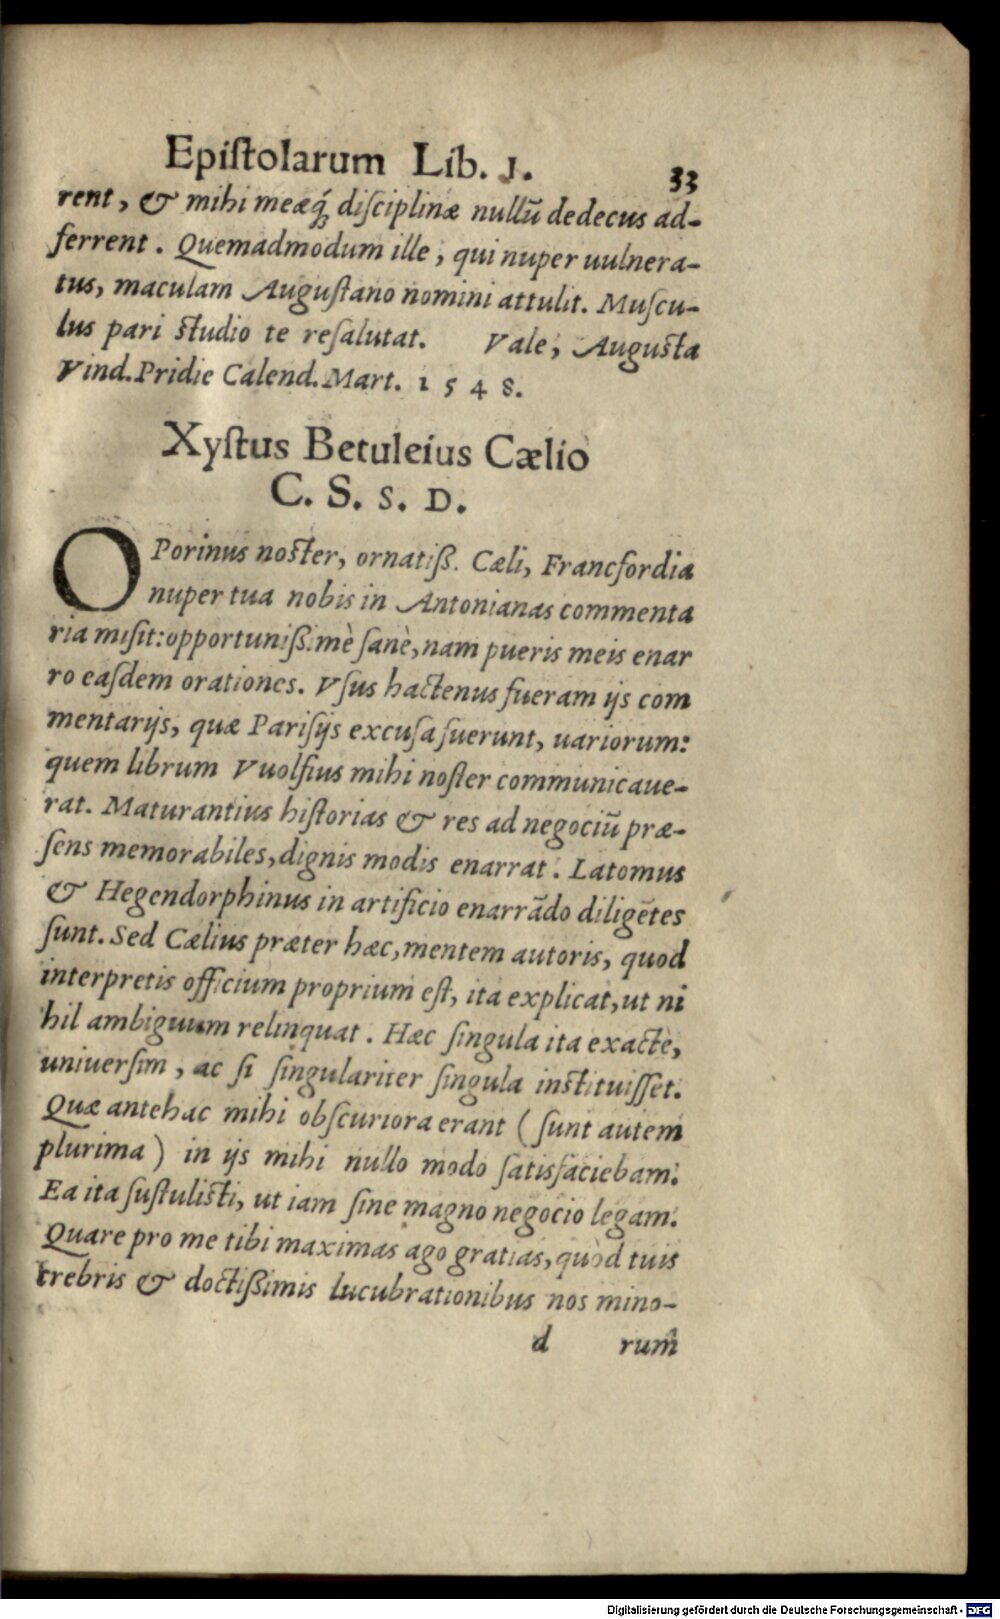 Epiſtolarum Lib. I. 33
rent, & mihi meæq́; diſciplinæ nullũ dedecus ad-
ferrent. Quemadmodum ille, qui nuper uulnera-
tus, maculam Auguſtano nomini attulit. Muſcu-
lus pari ſtudio te reſalutat. Vale, Auguſta
Vind. Pridie Calend. Mart. 1548.
Xyſtus Betuleius Cælio
C. S. S. D.
OPorinus noſter, ornatiß. Cæli, Francfordia
nuper tua nobis in Antonianas commenta
ria miſit: opportunißimè ſanè, nam pueris meis enar
ro eaſdem orationes. Vſus hactenus fueram ijs com
mentarijs, quæ Pariſijs excuſa fuerunt, uariorum:
quem librum Vuolfius mihi noſter communicaue-
rat. Maturantius hiſtorias & res ad negociũ præ-
ſens memorabiles, dignis modis enarrat. Latomus
& Hegendorphinus in artificio enarrãdo diligẽtes
ſunt. Sed Cælius præter hæc, mentem autoris, quod
interpretis officium proprium eſt, ita explicat, ut ni
hil ambiguum relinquat. Hæc ſingula ita exactè,
uniuerſim, ac ſi ſingulariter ſingula inſtituiſſet.
Quæ antehac mihi obſcuriora erant (ſunt autem
plurima) in ijs mihi nullo modo ſatisfaciebam.
Ea ita ſuſtuliſti, ut iam ſine magno negocio legam.
Quare pro me tibi maximas ago gratias, quòd tuis
crebris & doctißimis lucubrationibus nos mino-
d rum
Digitalisierung gefördert durch die Deutsche Forschungsgemeinschaft - DFG